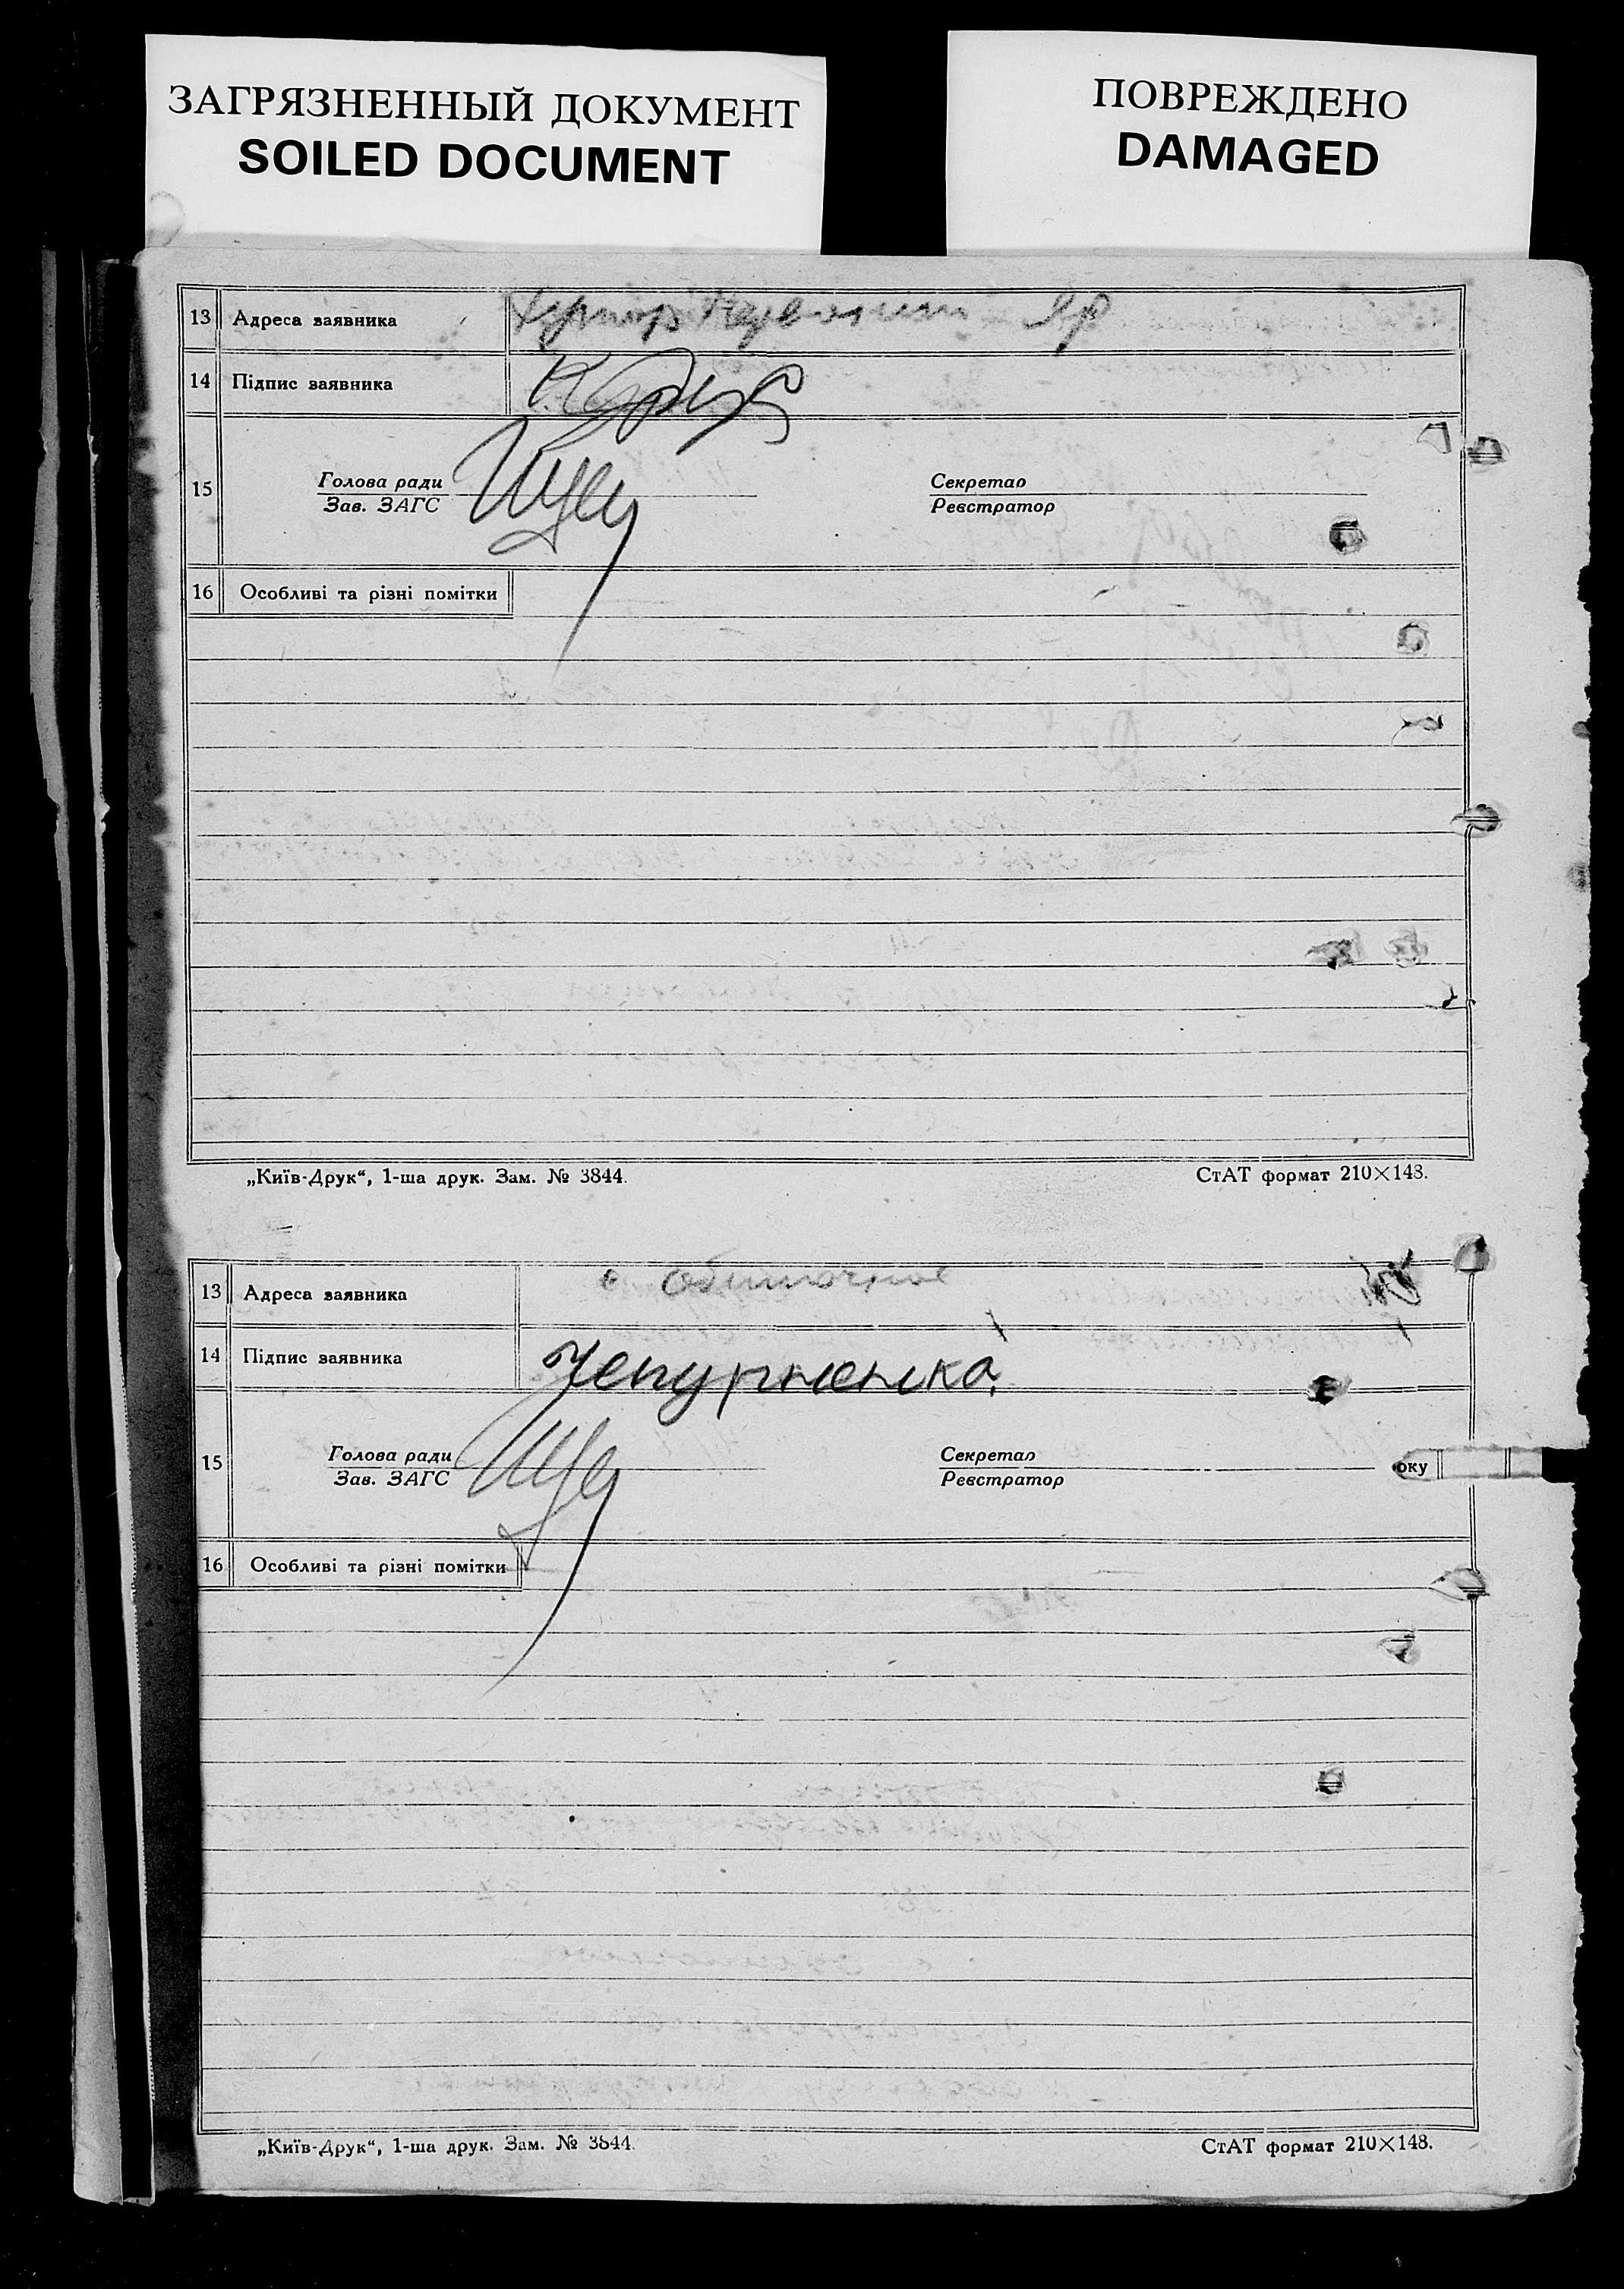 ЗАГРЯЗНЕННЫЙ ДОКУМЕНТ
SOILED DOCUMENT
ПОВРЕЖДЕНО
DAMAGED
13 Адреса заявника
14 Підпис заявника
15 Голова ради Секретар
Зав. ЗАГС Реєстратор
16 Особливі та різні помітки
„Київ-Друк“, 1-ша друк. Зам. № 3844. СтАТ формат 210×148.
13 Адреса заявника
14 Підпис заявника Чепурненко
15 Голова ради Секретар
Зав. ЗАГС Реєстратор оку
16 Особливі та різні помітки
„Київ-Друк“, 1-ша друк. Зам. № 3844. СтАТ формат 210×148.